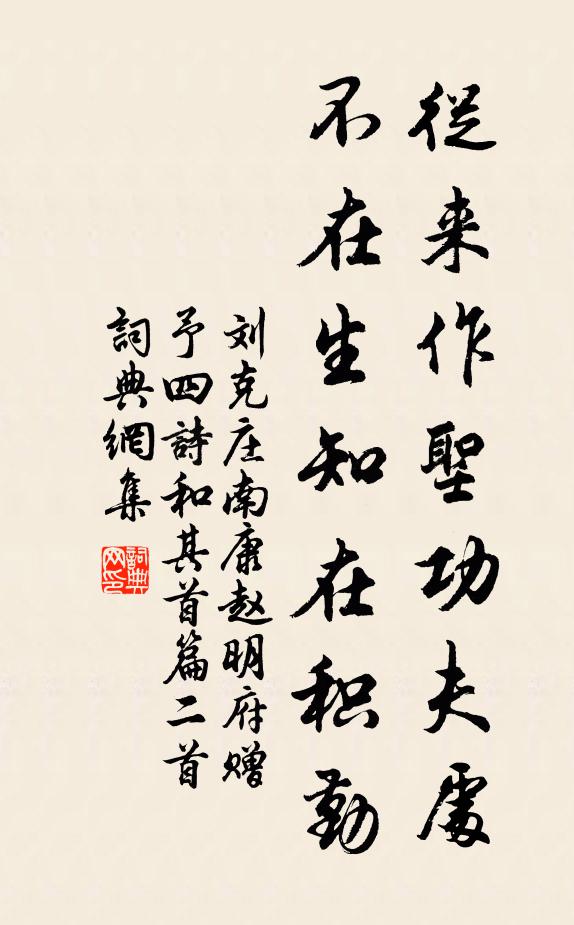 從来作聖功夫處
不在生知在积勤
刘克庄南康赵明府赠
予四詩和其首篇二首
詞典網集
詞典网印